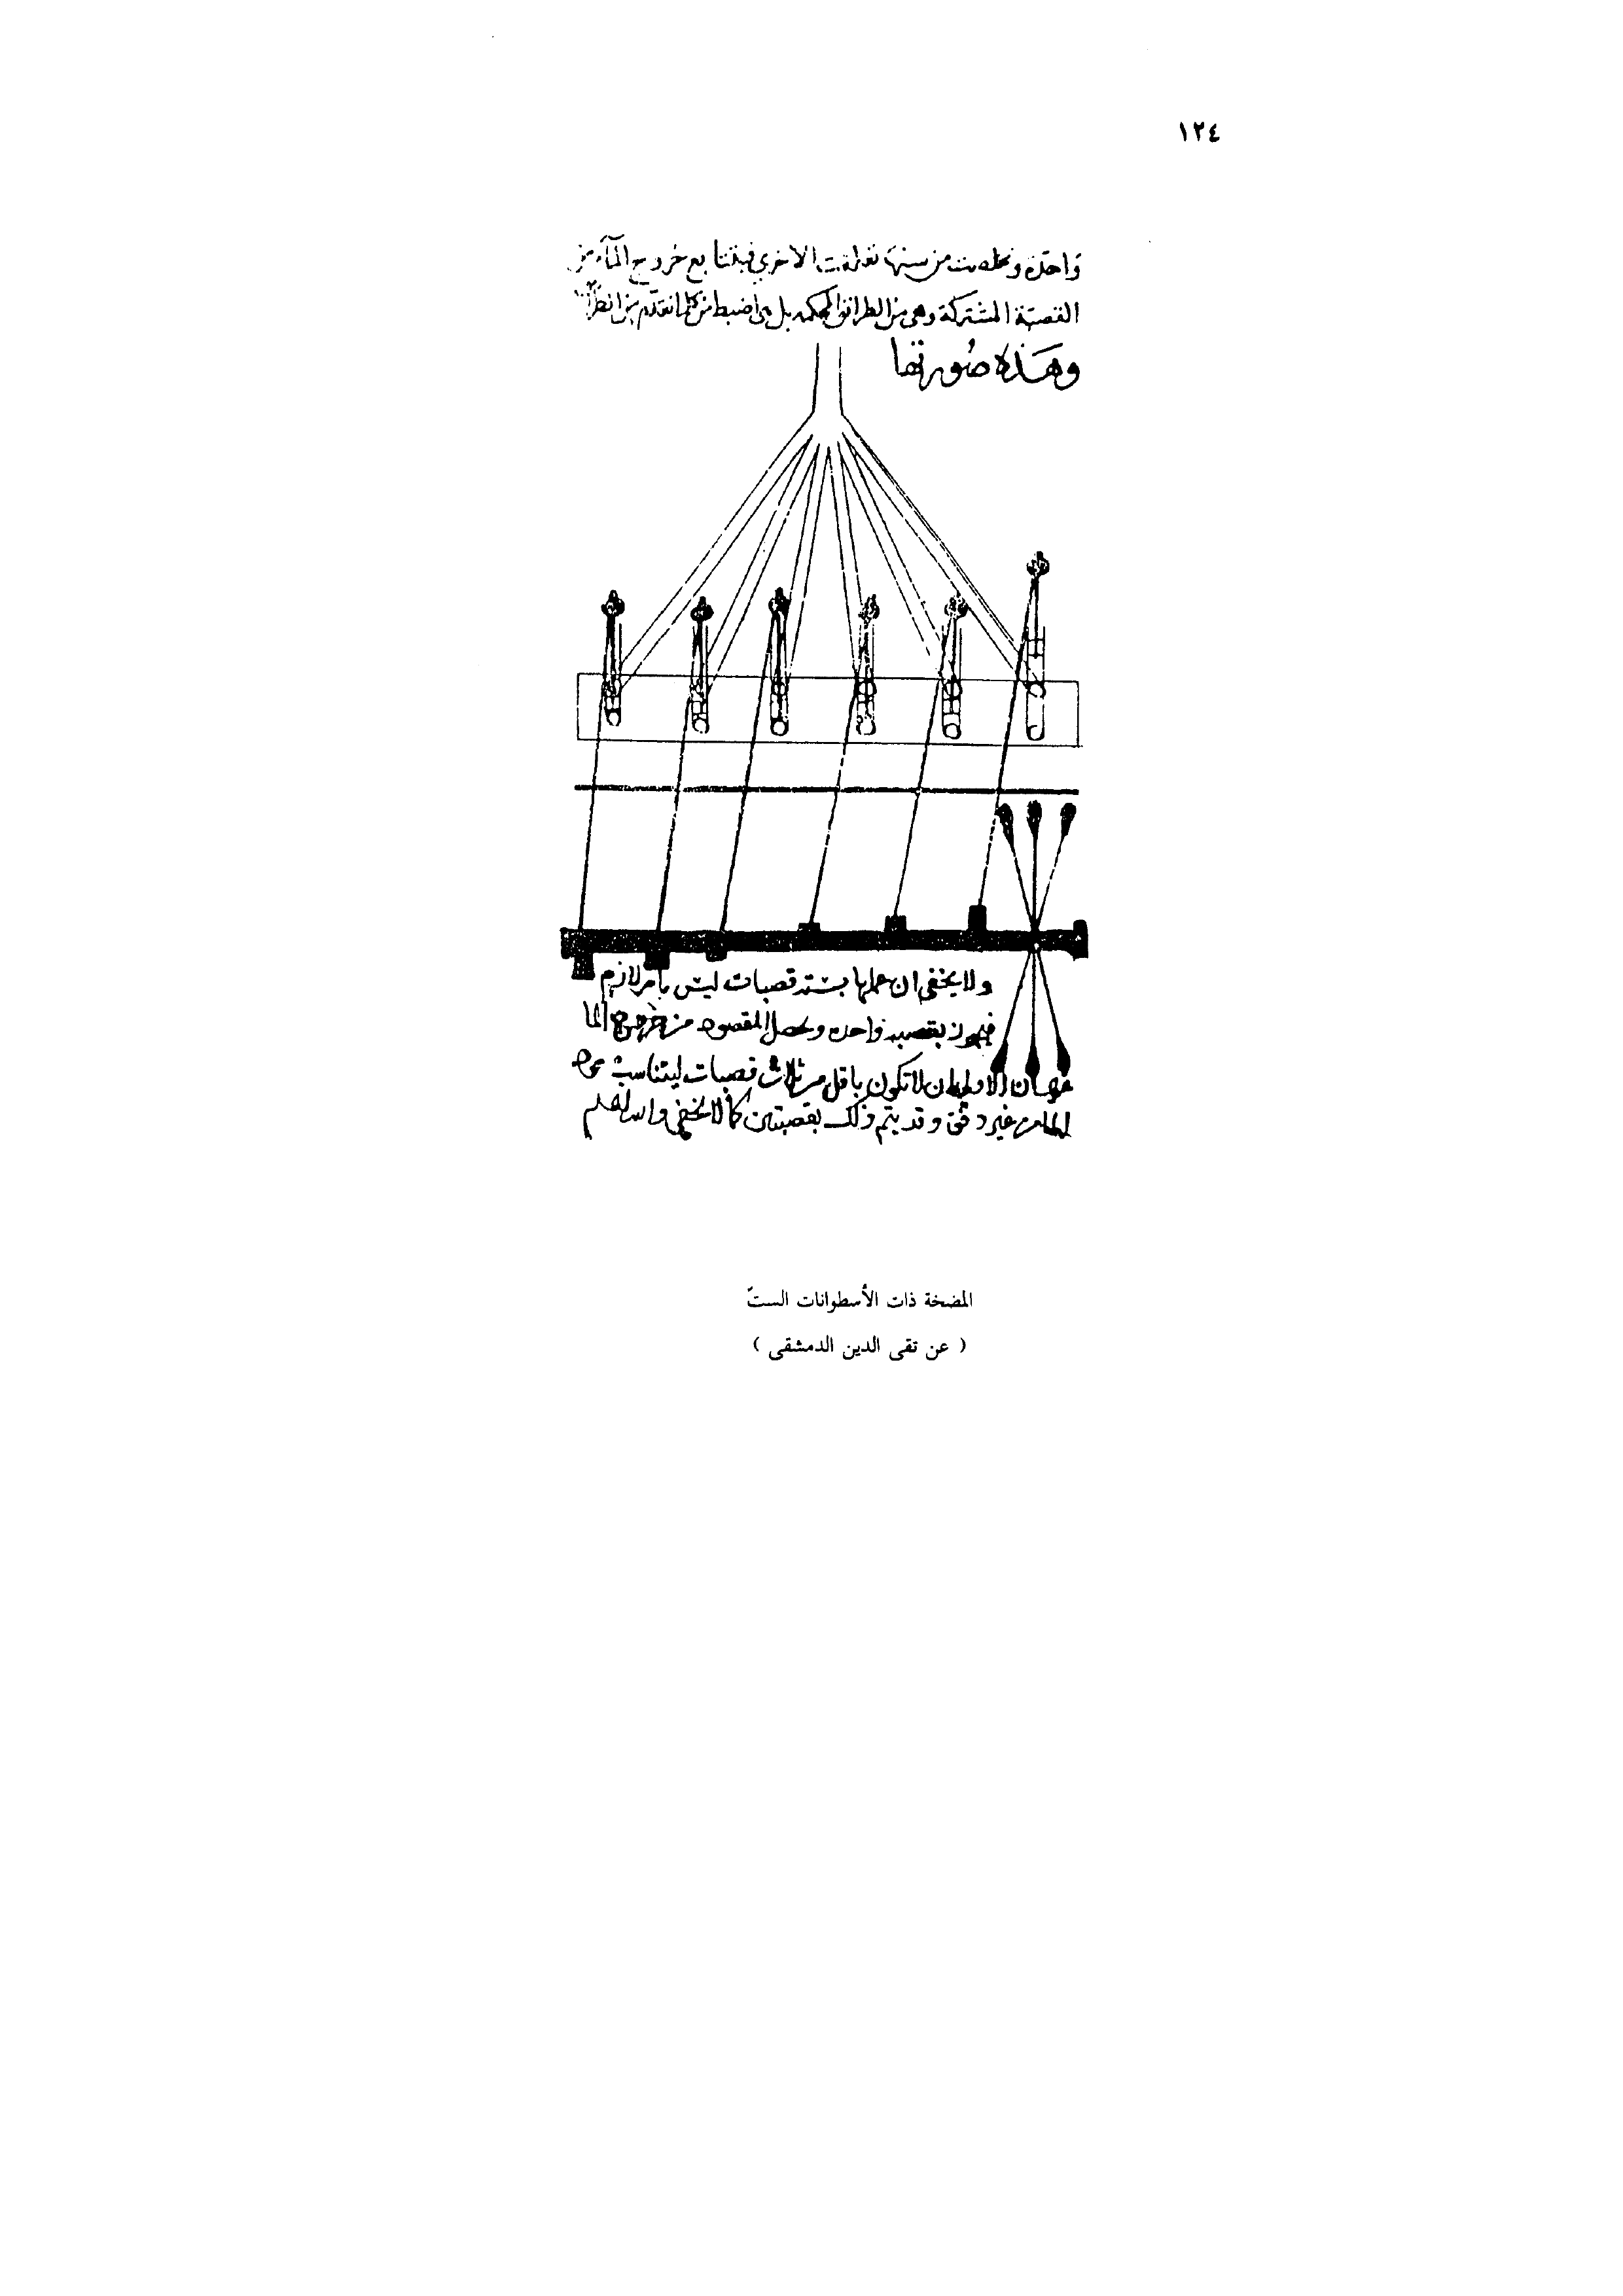 ١٢٤
واحدة وتخلصت من سنها تعلقت الاخرى فيتتابع خروج المآء من
القصبة المشتركة وهي من الطرائق المحكمه بل هي اضبط من كلما تقدم من
وهذه صورتها
ولا يخفى ان عملها بستة قصبات ليس بامر لازم
بقصبه واحده ويحصل المقصود من خروج الما
ان لا تكون باقل من ثلاث قصبات ليتناسب
الما من غير دفق وقد يتم ذلك بقصبتين كما لا يخفى والله اعلم
المضخة ذات الأسطوانات الستّ
( عن تقى الدين الدمشقى )